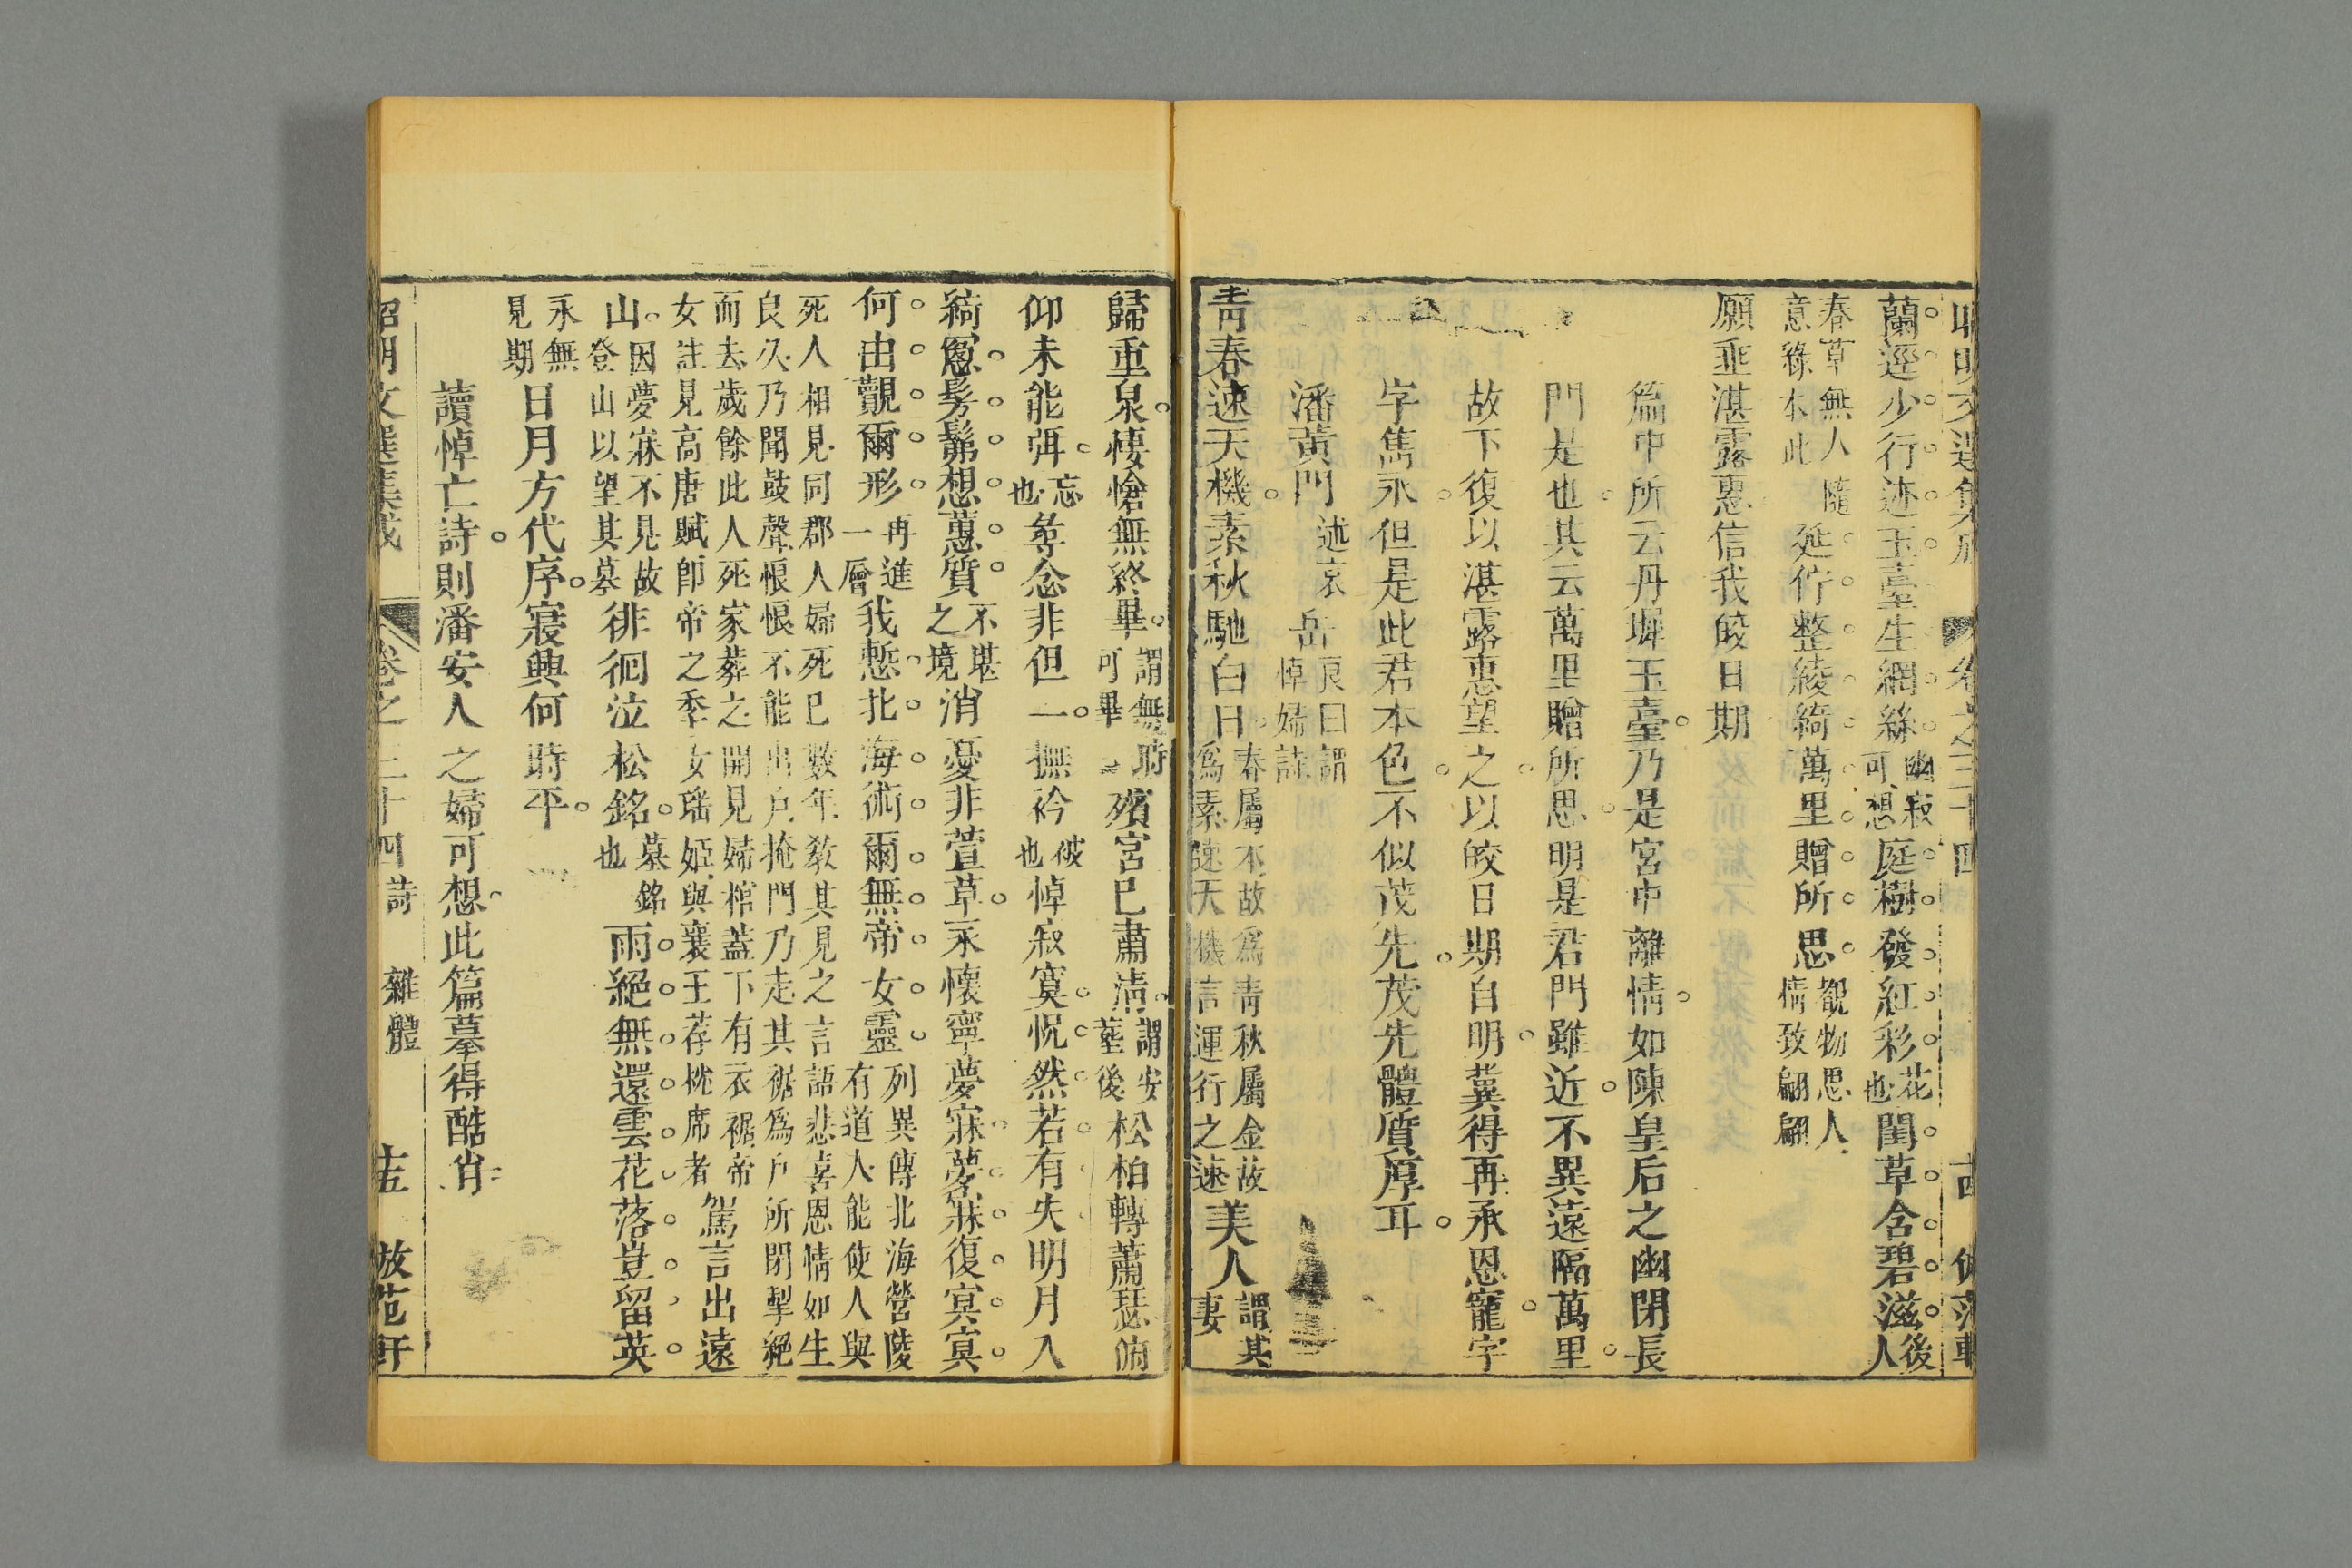 昭明文選集成 卷之三十四 古 倣范軒
蘭逕少行迹玉臺生網絲幽寂可想庭樹發紅彩花也閨草含碧滋後人
春草無人隨意綠本此延佇整綾綺萬里贈所思覩物思人情致翩翩
願垂湛露惠信我皎日期
篇中所云丹墀玉臺乃是宮中離情如陳皇后之幽閉長
門是也其云萬里贈所思明是君門雖近不異遠隔萬里
故下復以湛露惠望之以皎日期自明冀得再承恩寵字
字雋永但是此君本色不似茂先茂先體質厚耳
潘黃門述哀 岳 良曰謂悼婦詩
青春速天機素秋馳白日春屬木故爲青秋屬金故爲素速天機言運行之速美人謂其妻
歸重泉悽愴無終畢謂無時可畢殯宮已肅清謂安塟後松柏轉蕭瑟俯
仰未能弭忘也尋念非但一撫衿袊也悼寂寞怳然若有失明月入
綺窻髣髴想蕙質不堪之境消憂非萱草永懷寧夢寐夢寐復冥冥
何由覿爾形再進一層我慙北海術爾無帝女靈列異傳北海營陵有道人能使人與
死人相見同郡人婦死已數年敎其見之言語悲喜恩情如生
良久乃聞鼓聲悢悢不能出戶掩門乃走其裾爲戶所閉掣絕
而去歲餘此人死家葬之開見婦棺蓋下有衣裾帝
女註見高唐賦卽帝之季女瑤姬與襄王荐枕席者駕言出遠
山因夢寐不見故登山以望其墓徘徊泣松銘墓銘也雨絕無還雲花落豈留英
永無見期日月方代序寢興何時平
讀悼亡詩則潘安人之婦可想此篇摹得酷肖
昭明文選集成 卷之三十四 詩 雜體 十五 倣范軒